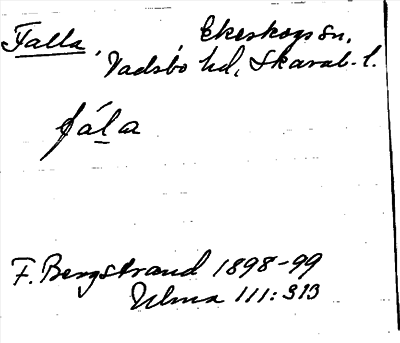 Falla, Ekeskogs sn,
Vadsbo hd, Skarab. l.
fála
F. Bergstrand 1898-99
Ulma 111:313